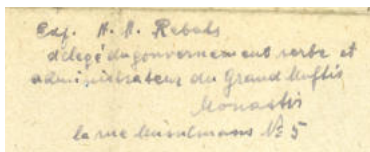 Exp. H. H. Rebads
délegé du gouvernement serbe et
administrateur du Grand Muftis
Monastir
la rue Musulmans № 5